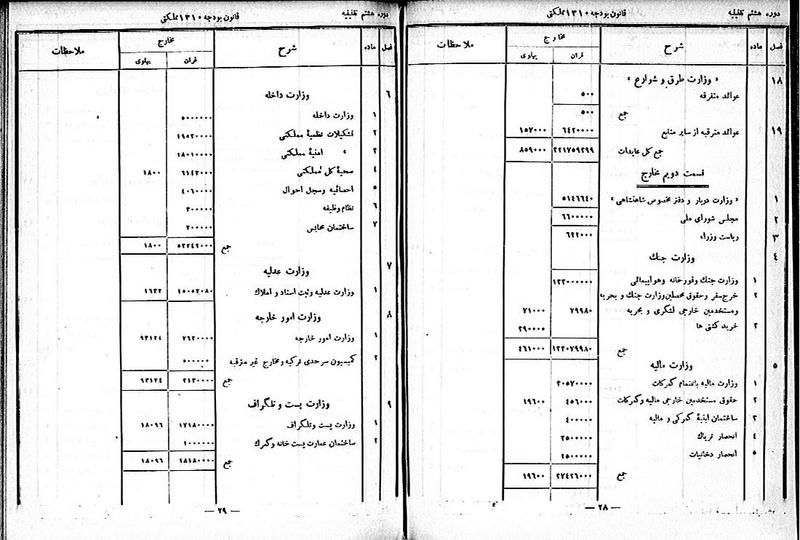 دوره هشتم تقنینیه
قانون بودجه ۱۳۱۰ مملکتی
فصل ماده شرح مخارج ملاحظات
قران پهلوی
۱۸ «وزارت طرق و شوارع»
عوائد متفرقه ۵۰۰
جمع ۵۰۰
۱۹ عوائد مترقبه از سایر منابع ۶۴۲۰۰۰۰ ۱۵۷۰۰۰
جمع کل عایدات ۲۲۱۷۵۹۲۹۹ ۸۵۹۰۰۰
قسمت دویم مخارج
۱ «وزارت دربار و دفتر مخصوص شاهنشاهی» ۵۱۴۶۶۴۰
۲ مجلس شورای ملی ۶۶۰۰۰۰۰
۳ ریاست وزراء ۶۲۲۰۰۰
۴ وزارت جنگ
۱ وزارت جنگ وقورخانه وهواپیمائی
۲ خرج سفر وحقوق محصلین وزارت جنگ و بحریه
ومستخدمین خارجی لشگری و بحریه ۷۹۹۸۰ ۷۱۰۰۰
خرید کشتی ها ۳۹۰۰۰۰
جمع ۴۶۱۰۰۰
۵ وزارت مالیه
۱ وزارت مالیه بانضمام گمرکات ۲۰۵۷۰۰۰۰
۲ حقوق مستخدمین خارجی مالیه وگمرکات ۴۵۶۰۰۰ ۱۹۶۰۰
۳ ساختمان ابنیه گمرکی و مالیه ۴۰۰۰۰۰
۴ انحصار تریاک ۳۵۰۰۰۰۰
۵ انحصار دخانیات ۲۵۰۰۰۰۰
جمع ۲۷۴۲۶۰۰۰ ۱۹۶۰۰
— ۲۸ —
دوره هشتم تقنینیه
قانون بودجه ۱۳۱۰ مملکتی
فصل ماده شرح مخارج ملاحظات
قران پهلوی
۶ وزارت داخله
۱ وزارت داخله ۵۰۰۰۰۰۰
۲ تشکیلات نظمیهٔ مملکتی ۱۹۰۲۰۰۰۰
۳ » امنیهٔ مملکتی ۱۸۰۱۰۰۰۰
۴ صحیهٔ کل مملکتی ۶۱۴۲۰۰۰ ۱۸۰۰
۵ احصائیه وسجل احوال ۴۰۶۰۰۰۰
۶ نظام وظیفه
۷ ساختمان محابس
جمع ۵۲۲۴۲۰۰۰ ۱۸۰۰
۷ وزارت عدلیه
۱ وزارت عدلیه وثبت اسناد و املاک ۱۵۰۵۲۰۸۰ ۱۶۲۲
۸ وزارت امور خارجه
۱ وزارت امور خارجه ۲۶۳۰۰۰ ۹۳۱۲۴
۲ کمیسیون سرحدی ترکیه ومخارج غیر مترقبه
جمع ۹۳۱۲۴
۹ وزارت پست و تلگراف
۱ وزارت پست وتلگراف ۱۷۱۸۰۰۰۰ ۱۸۰۹۶
۲ ساختمان عمارت پست خانه وگمرک ۱۰۰۰۰۰۰
جمع ۱۸۱۸۰۰۰۰ ۱۸۰۹۶
— ۲۹ —